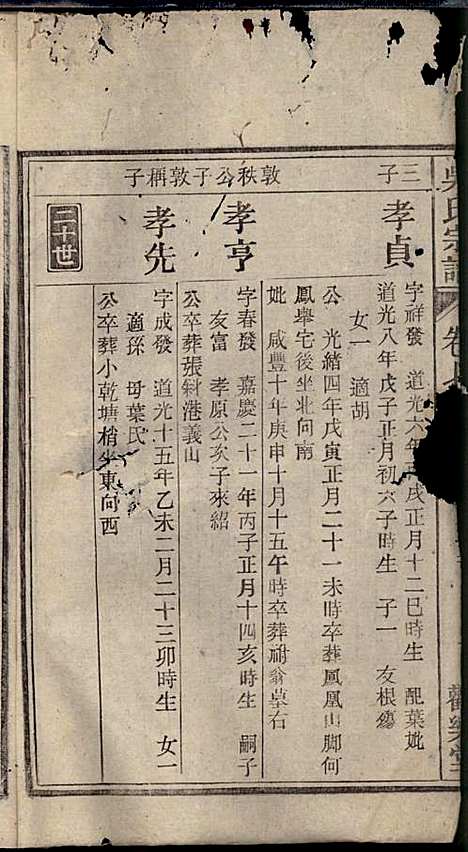 吳氏宗譜 卷
三子
敦秩公子敦稱子
孝貞
字祥發 道光六年戌正月十二巳時生 配葉妣
道光八年戊子正月初六子時生 子一 友根
女一 適胡
公 光緒四年戊寅正月二十一未時卒葬鳳凰山脚何
鳳舉宅後坐北向南
妣 咸豐十年庚申十月十五午時卒葬祔翁墓右
孝亨
字春發 嘉慶二十一年丙子正月十四亥時生 嗣子
友富 孝原公次子來紹
公卒葬張斜港義山
孝先
字成發 道光十五年乙未二月二十三卯時生 女一
適孫 母葉氏
公卒葬小乾塘梢坐東向西
二十世